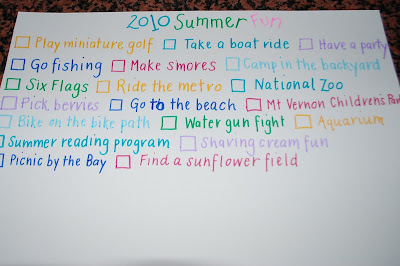 2010 Summer Fun
Play miniature golf Take a boat ride Have a party
Go fishing Make smores Camp in the backyard
Six Flags Ride the metro National Zoo
Pick berries Go to the beach Mt Vernon Children's
Bike on the bike path Water gun fight Aquarium
Summer reading program Shaving cream fun
Picnic by the Bay Find a sunflower field